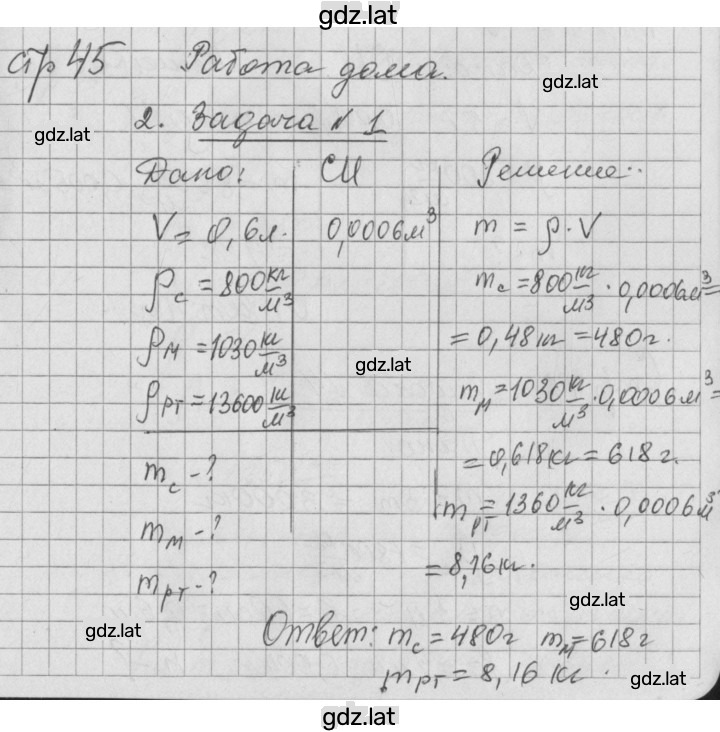 gdz.lat
стр 45 Работа дома.
gdz.lat
gdz.lat
2. Задача № 1
Дано: СИ Решение:
V = 0,6л. 0,0006м³ m = ρ·V
ρс = 800 кг/м³ mс = 800 кг/м³ · 0,0006м³ =
= 0,48кг = 480г.
ρм = 1030 кг/м³
gdz.lat
ρрт = 13600 кг/м³ mм = 1030 кг/м³ · 0,0006м³ =
= 0,618кг = 618г.
mс - ?
mрт = 1360 кг/м³ · 0,0006м³
mм - ?
= 8,16кг.
mрт - ?
gdz.lat
gdz.lat
Ответ: mс = 480г mм = 618г
mрт = 8,16 кг.
gdz.lat
gdz.lat